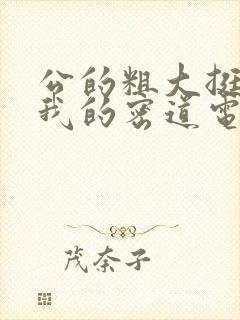 公的粗大挺
我的密道电
茂奈子